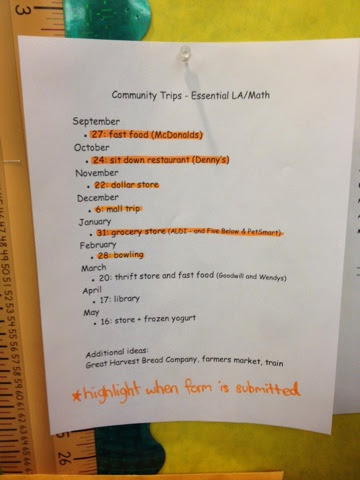 Community Trips - Essential LA/Math
September
• 27: fast food (McDonalds)
October
• 24: sit down restaurant (Denny's)
November
• 22: dollar store
December
• 6: mall trip
January
• 31: grocery store (ALDI - and Five Below & PetSmart)
February
• 28: bowling
March
• 20: thrift store and fast food (Goodwill and Wendys)
April
• 17: library
May
• 16: store + frozen yogurt
Additional ideas:
Great Harvest Bread Company, farmers market, train
*highlight when form is submitted
3
26